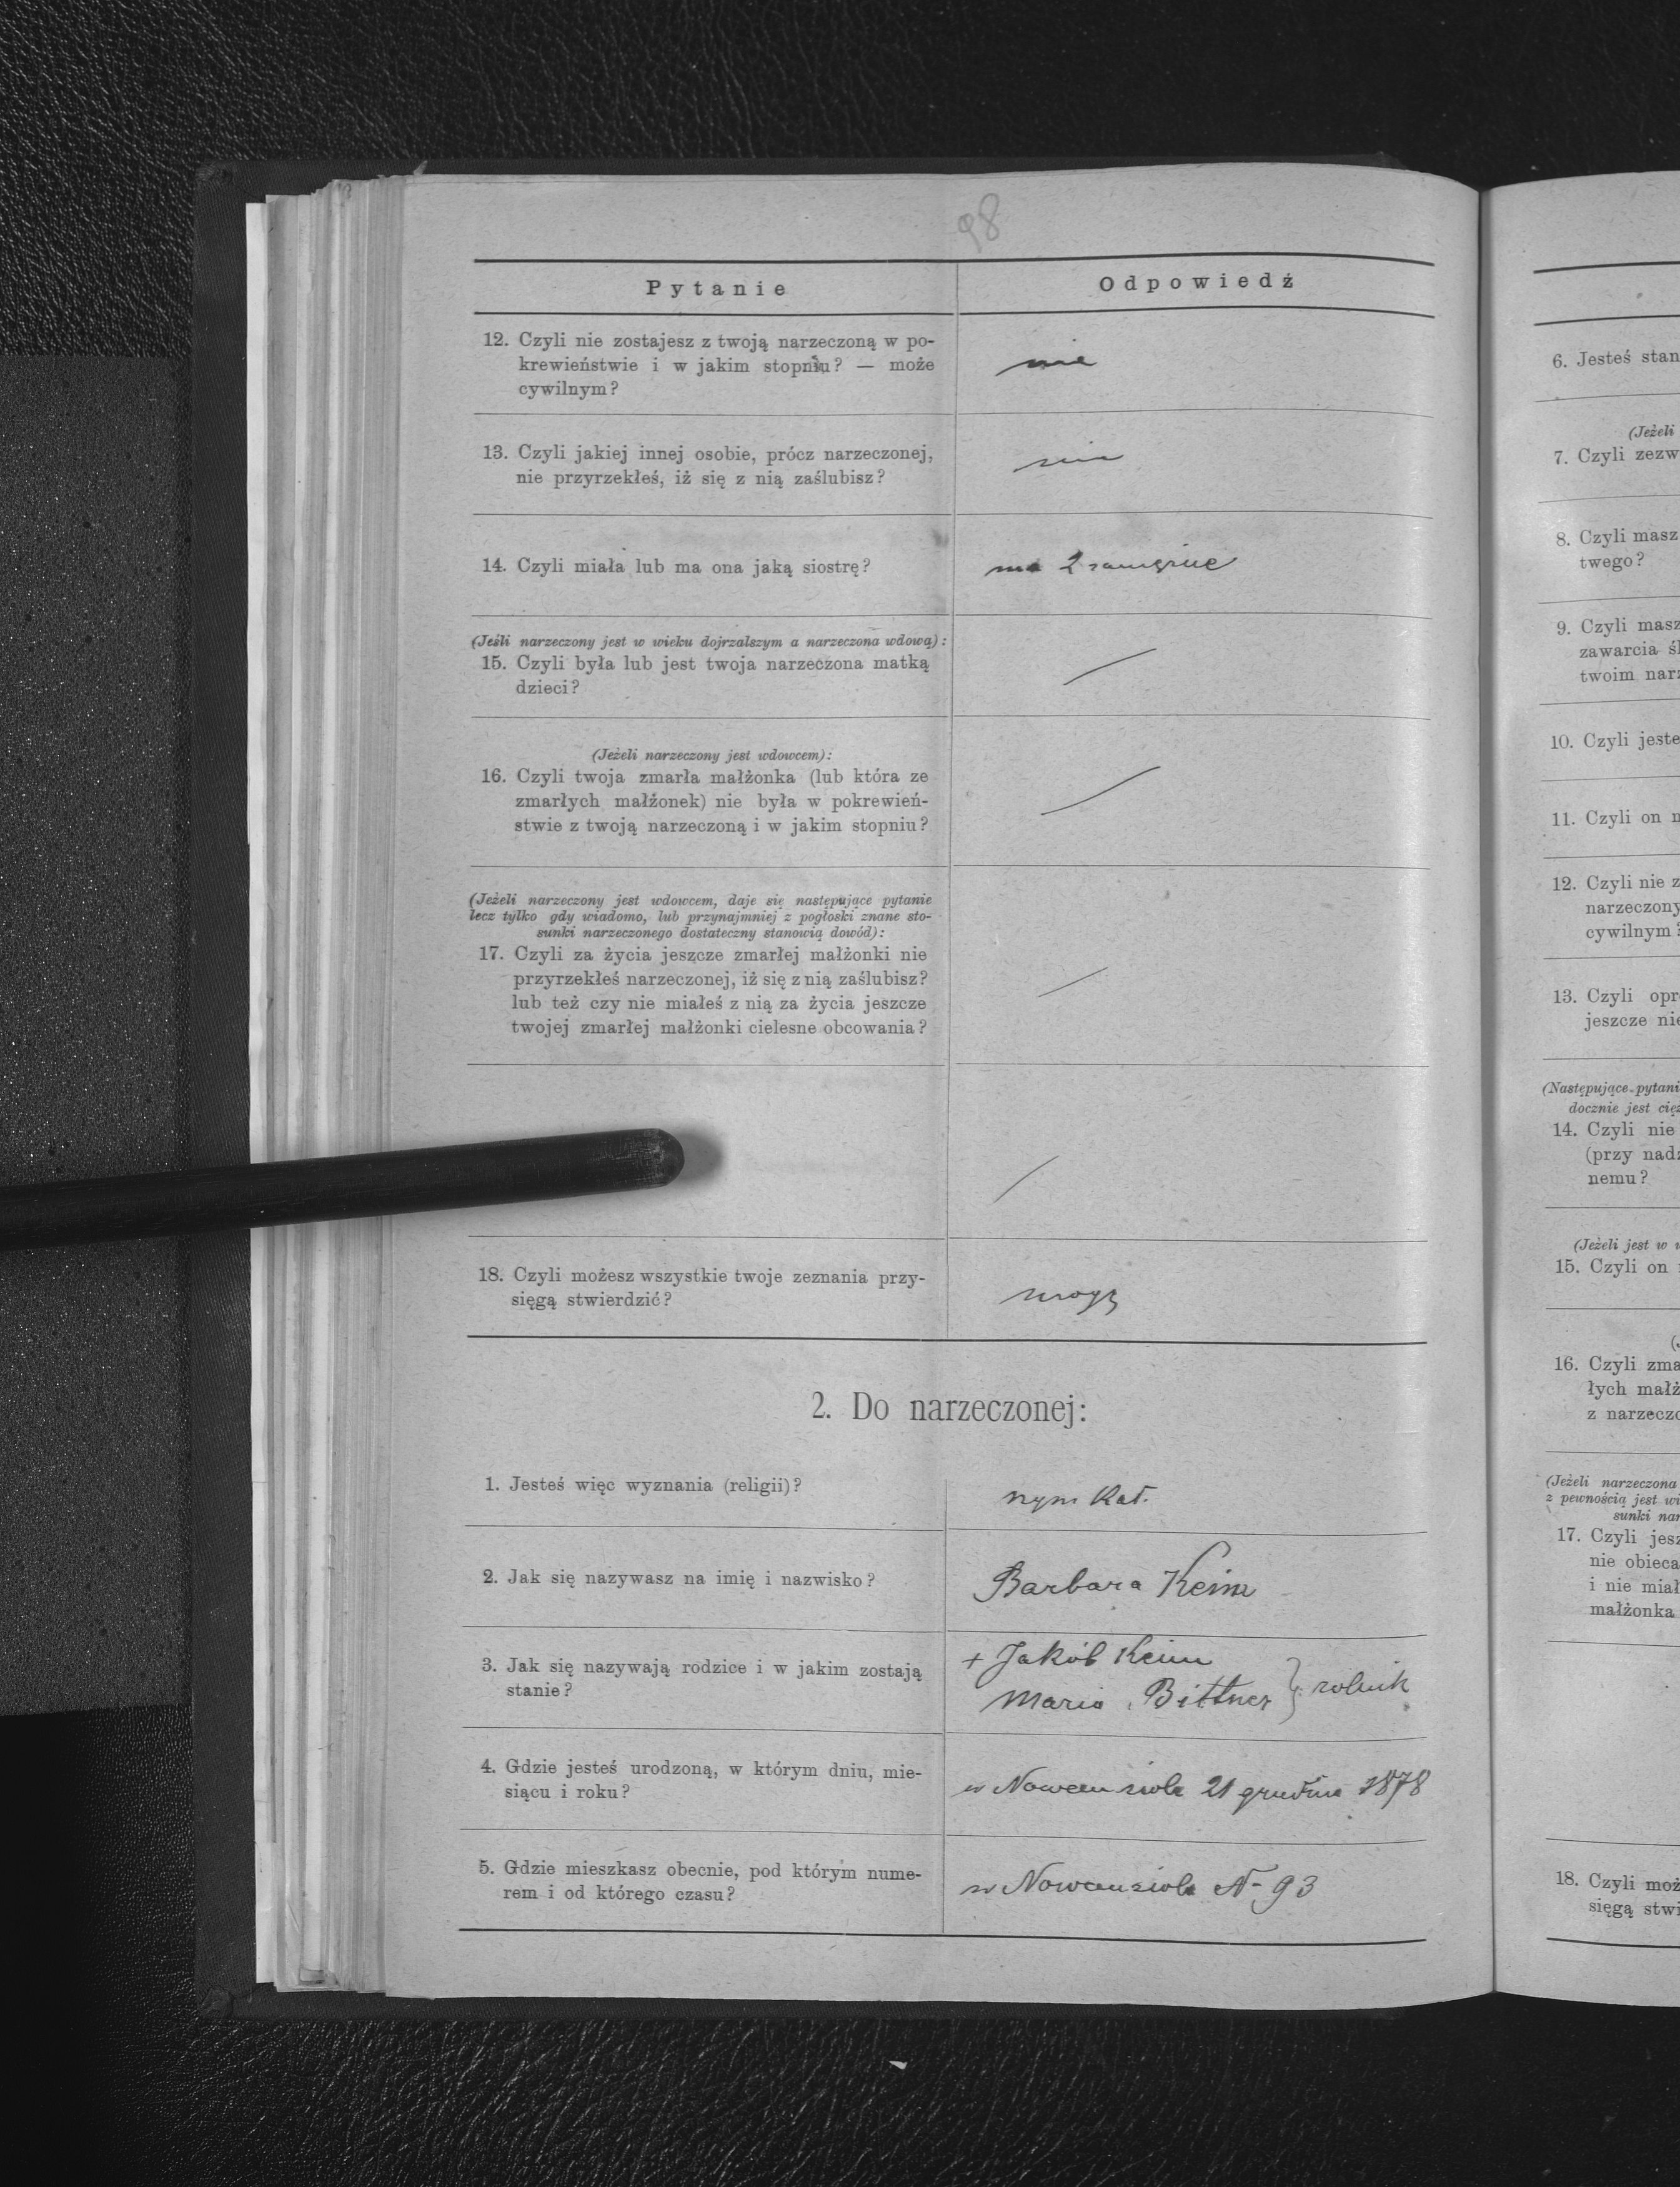 98
Pytanie
Odpowiedź
12. Czyli nie zostajesz z twoją narzeczoną w po-
krewieństwie i w jakim stopniu? — może
cywilnym?
nie
13. Czyli jakiej innej osobie, prócz narzeczonej,
nie przyrzekłeś, iż się z nią zaślubisz?
nie
14. Czyli miała lub ma ona jaką siostrę?
ma 2 zamężne
(Jeśli narzeczony jest w wieku dojrzalszym a narzeczona wdową):
15. Czyli była lub jest twoja narzeczona matką
dzieci?
(Jeżeli narzeczony jest wdowcem):
16. Czyli twoja zmarła małżonka (lub która ze
zmarłych małżonek) nie była w pokrewień-
stwie z twoją narzeczoną i w jakim stopniu?
(Jeżeli narzeczony jest wdowcem, daje się następujące pytanie
lecz tylko gdy wiadomo, lub przynajmniej z pogłoski znane sto-
sunki narzeczonego dostateczny stanowią dowód):
17. Czyli za życia jeszcze zmarłej małżonki nie
przyrzekłeś narzeczonej, iż się z nią zaślubisz?
lub też czy nie miałeś z nią za życia jeszcze
twojej zmarłej małżonki cielesne obcowania?
18. Czyli możesz wszystkie twoje zeznania przy-
sięgą stwierdzić?
mogę
2. Do narzeczonej:
1. Jesteś więc wyznania (religii)?
rzym kat.
2. Jak się nazywasz na imię i nazwisko?
Barbara Keim
3. Jak się nazywają rodzice i w jakim zostają
stanie?
+ Jakób Keim
Maria Bittner } rolnik
4. Gdzie jesteś urodzoną, w którym dniu, mie-
siącu i roku?
w Nowem siole 21 grudnia 1878
5. Gdzie mieszkasz obecnie, pod którym nume-
rem i od którego czasu?
w Nowemsiole N- 93
6. Jesteś stan
(Jeżeli
7. Czyli zezw
8. Czyli masz
twego?
9. Czyli masz
zawarcia śl
twoim narz
10. Czyli jeste
11. Czyli on n
12. Czyli nie z
narzeczony
cywilnym?
13. Czyli opr
jeszcze nie
(Następujące pytani
docznie jest cięż
14. Czyli nie
(przy nadz
nemu?
(Jeżeli jest w w
15. Czyli on
16. Czyli zma
łych małż
z narzeczo
(Jeżeli narzeczona
z pewnością jest wi
sunki nar
17. Czyli jesz
nie obieca
i nie miał
małżonka
18. Czyli moż
sięgą stwi